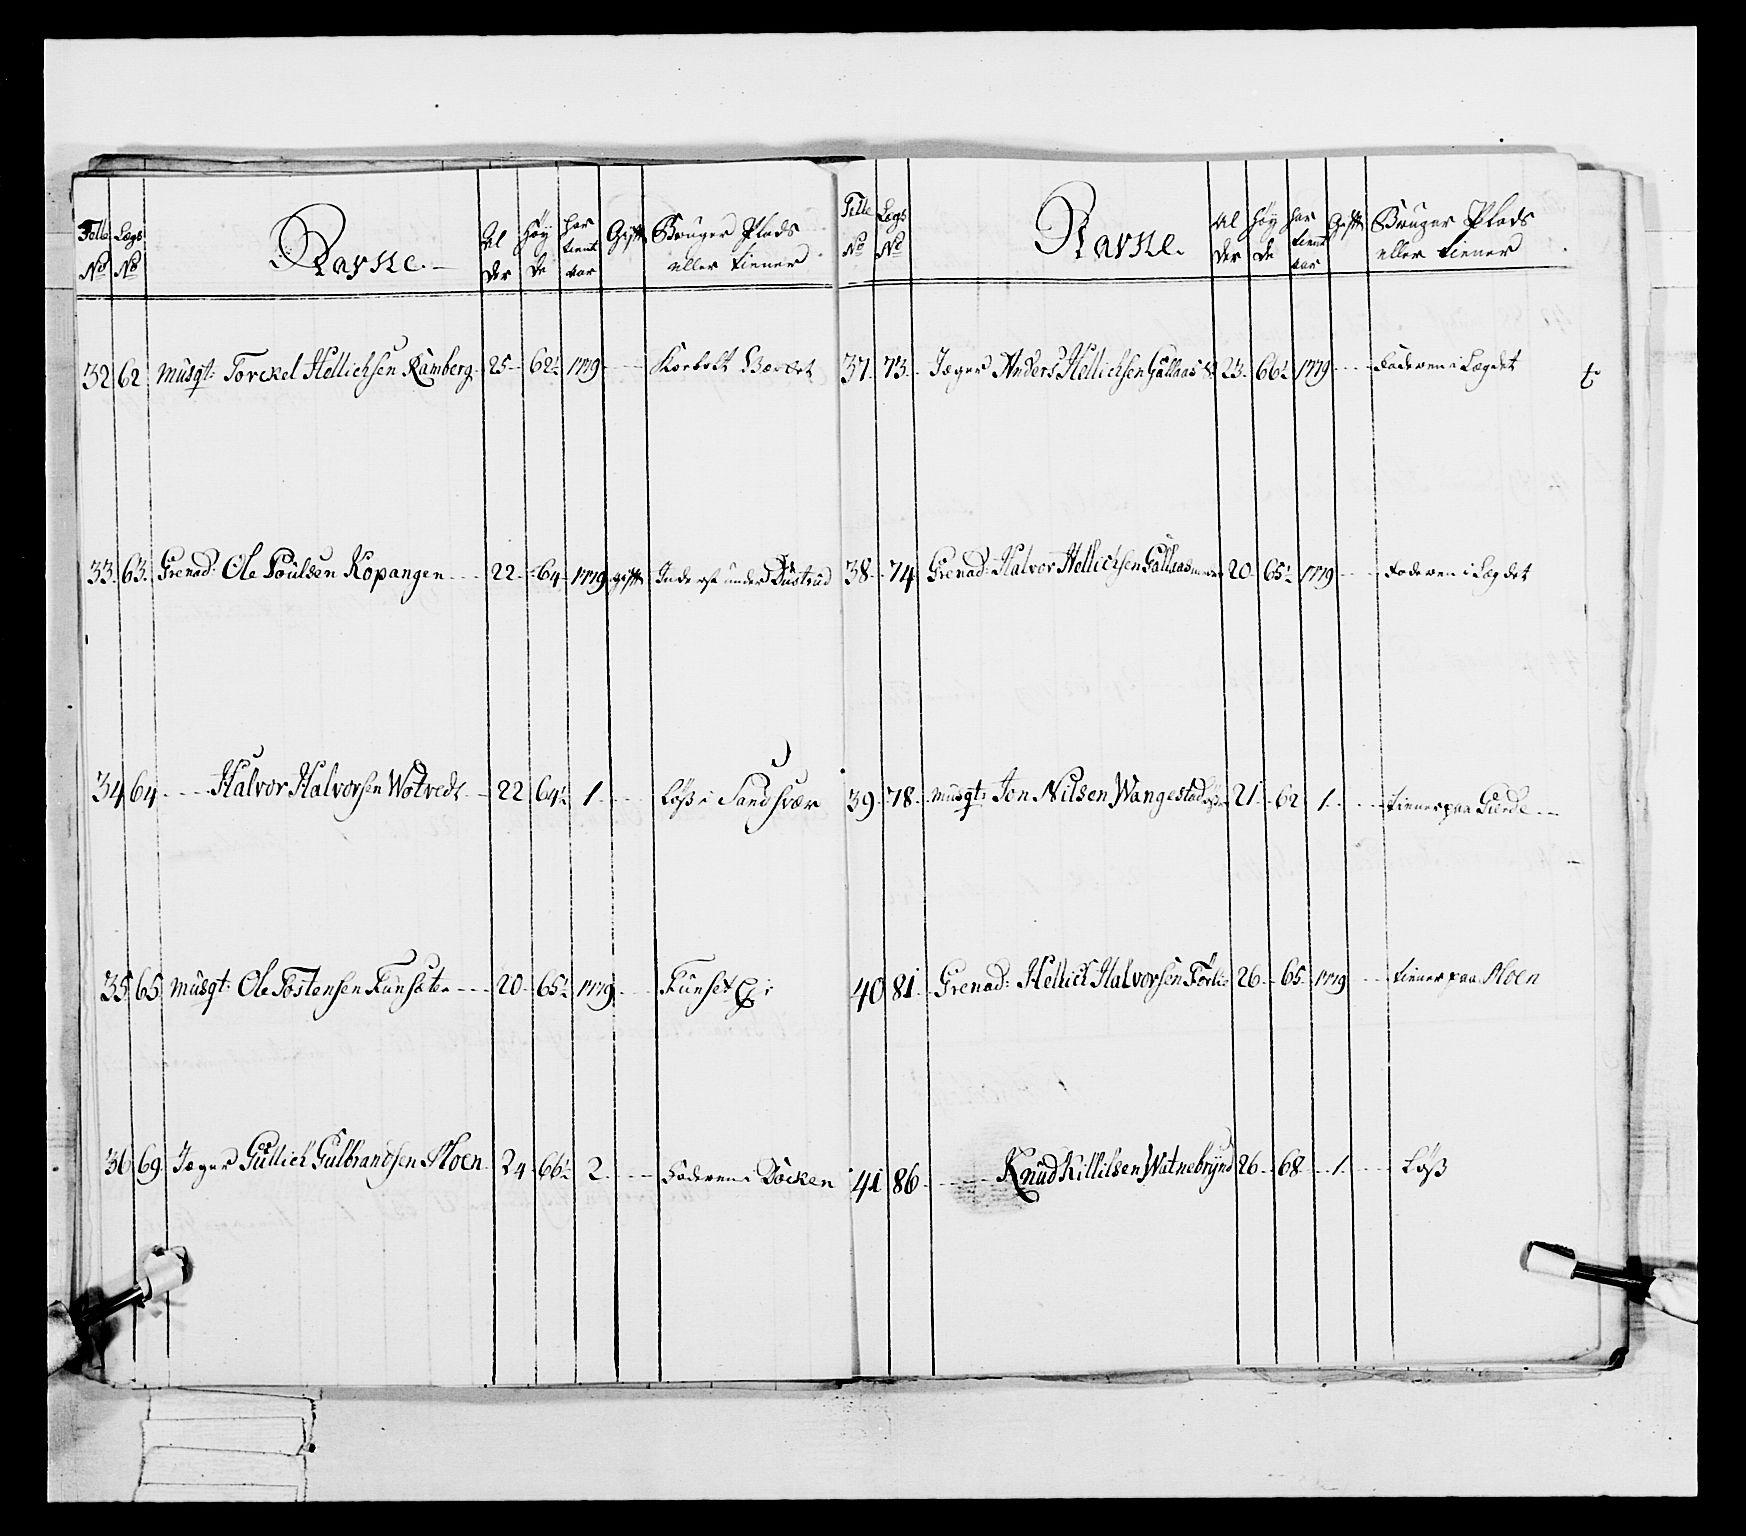 Tolle No Lægs No Navne. Al der Höy de har tient aar Gift Bruger Plads eller tiener
32 62 Musqt: Torckel Hellichsen Ramberg 25 62½ 1779
33 63 Grenad: Ole Poulsen Kopangen 22 64 1779 gift Inderst under
34 64 Halvor Halvorsen Wotvedt 22 64½ 1 Löss i Sandsvær
35 65 Musqt: Ole Tostensen Funsæter 20 65½ 1779 Funset Ej:
36 69 Jæger Gullich Gulbrandsen Moen 24 66½ 2 Faderen i Docken
Tolle No Lægs No Navne. Al der Höy de har tient aar Gift Bruger Plads eller tiener
37 73 Jæger Anders Hellichsen Gallaas 23 66½ 1779 Faderen i Lægdet
38 74 Grenad: Halvor Hellichsen Gallaas 20 65½ 1779 Faderen i Lægdet
39 78 Musqt: Jon Nilsen Wangestad 21 62 1 tiener paa Gierde
40 81 Grenad: Hellich Halvorsen Förli 26 65 1779 tiener paa Moen
41 86 Knud Killilsen Watnebrynd 26 68 1 Löss